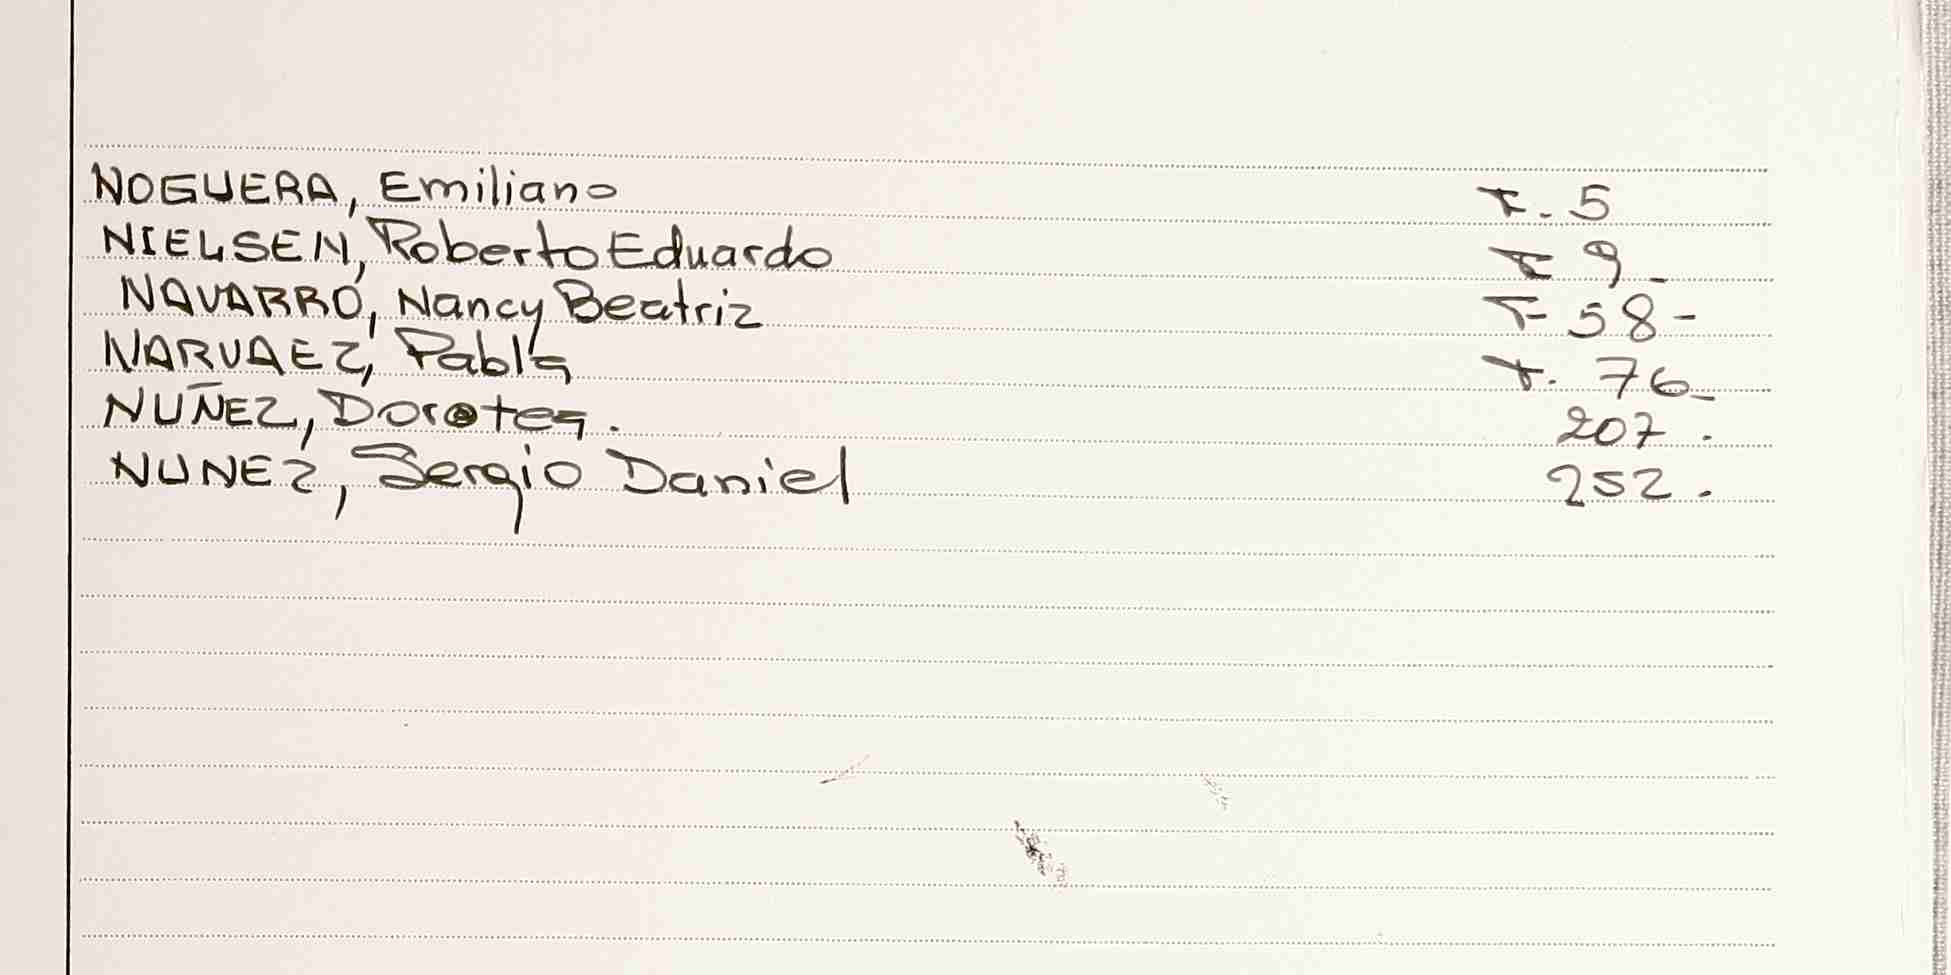 NOGUERA, Emiliano F. 5
NIELSEN, Roberto Eduardo F 9_
NAVARRO, Nancy Beatriz F 58-
NARVAEZ, Pabla F. 76_
NUÑEZ, Dorotea. 207.
NUNEZ, Sergio Daniel 252.